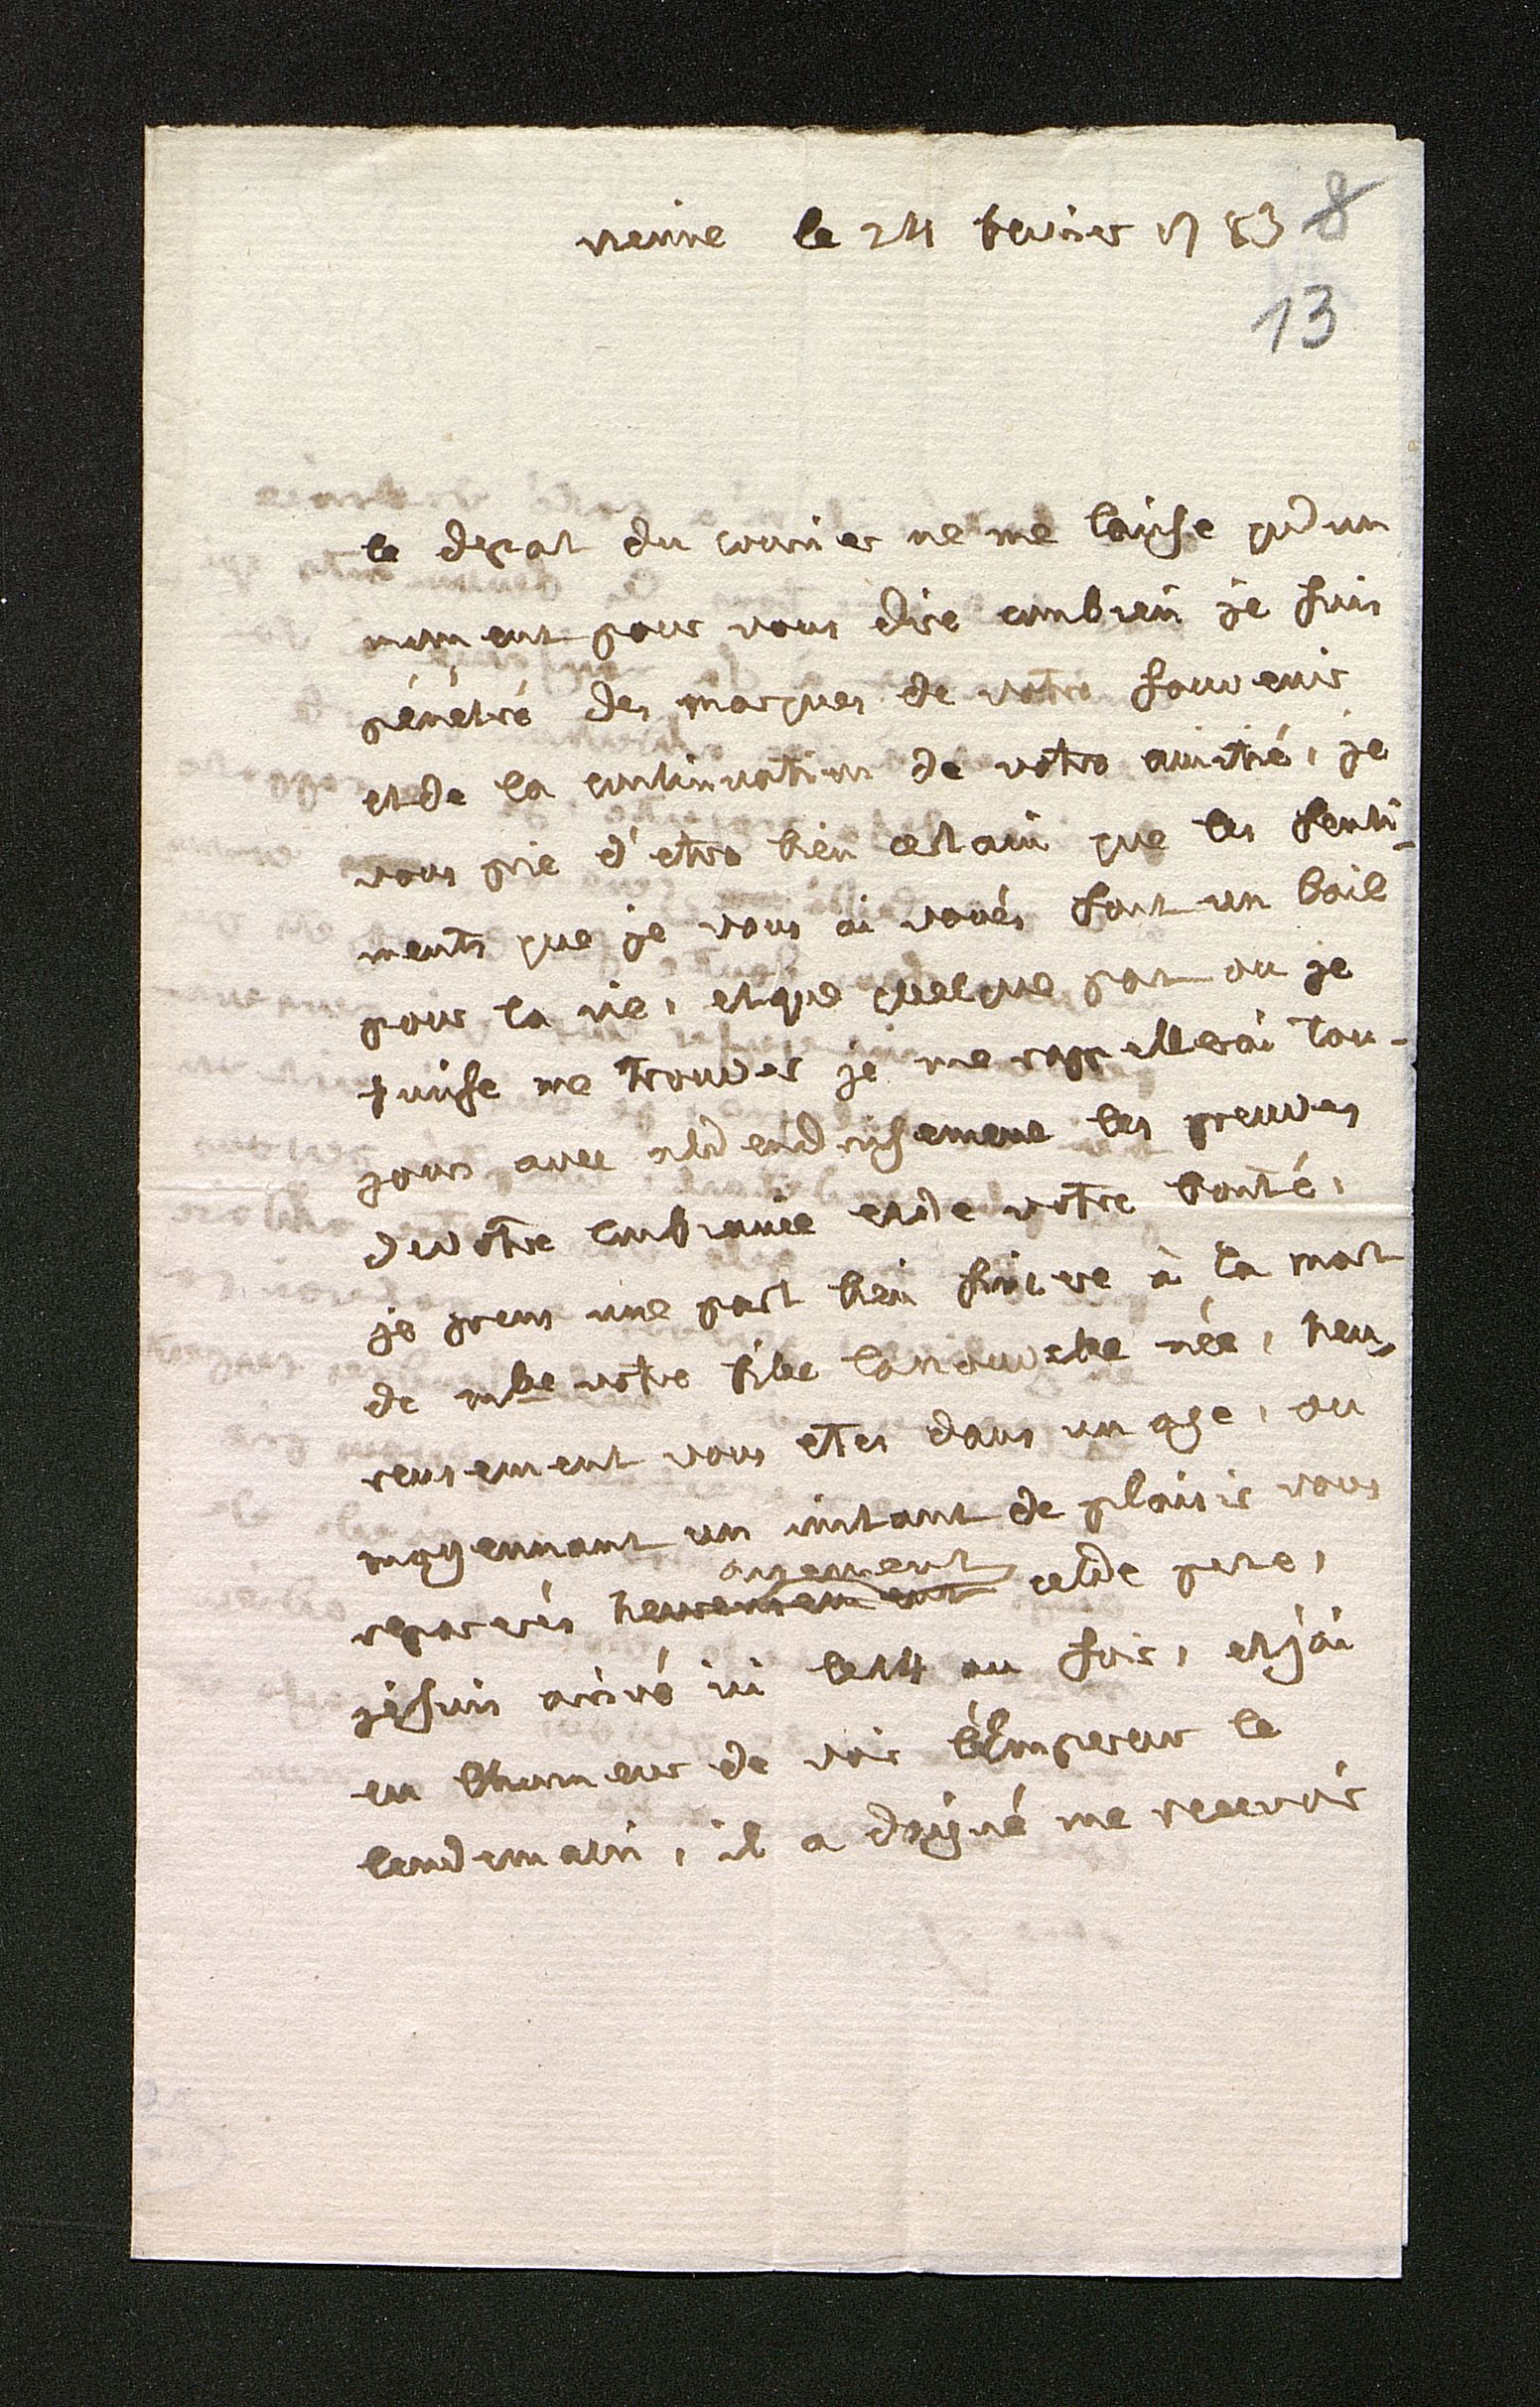 vienne le 24 fevrier 1783 8
13
le depart du courier ne me laisse qu'un
moment pour vous dire combien je suis
pénétré des marques de votre souvenir
et de la continuation de votre amitié, je
vous prie d'etre bien certain que les senti-
ments que je vous ai voués sont un bail
pour la vie, et que quelque part ou je
puisse me trouver je me rappellerai tou-
jours avec attendrissement les preuves
de votre confiance et de votre bonté,
je prens une part bien sincere à la mort
de mlle votre fille la nouvelle née, heu-
reusement vous etes dans un age, ou
moyennant un instant de plaisir vous
aisement
reparerés heureusement cette perte,
je suis arrivé ici le 14 au soir, et j'ai
eu lhonneur de voir l'Empereur le
lendemain, il a daigné me recevoir